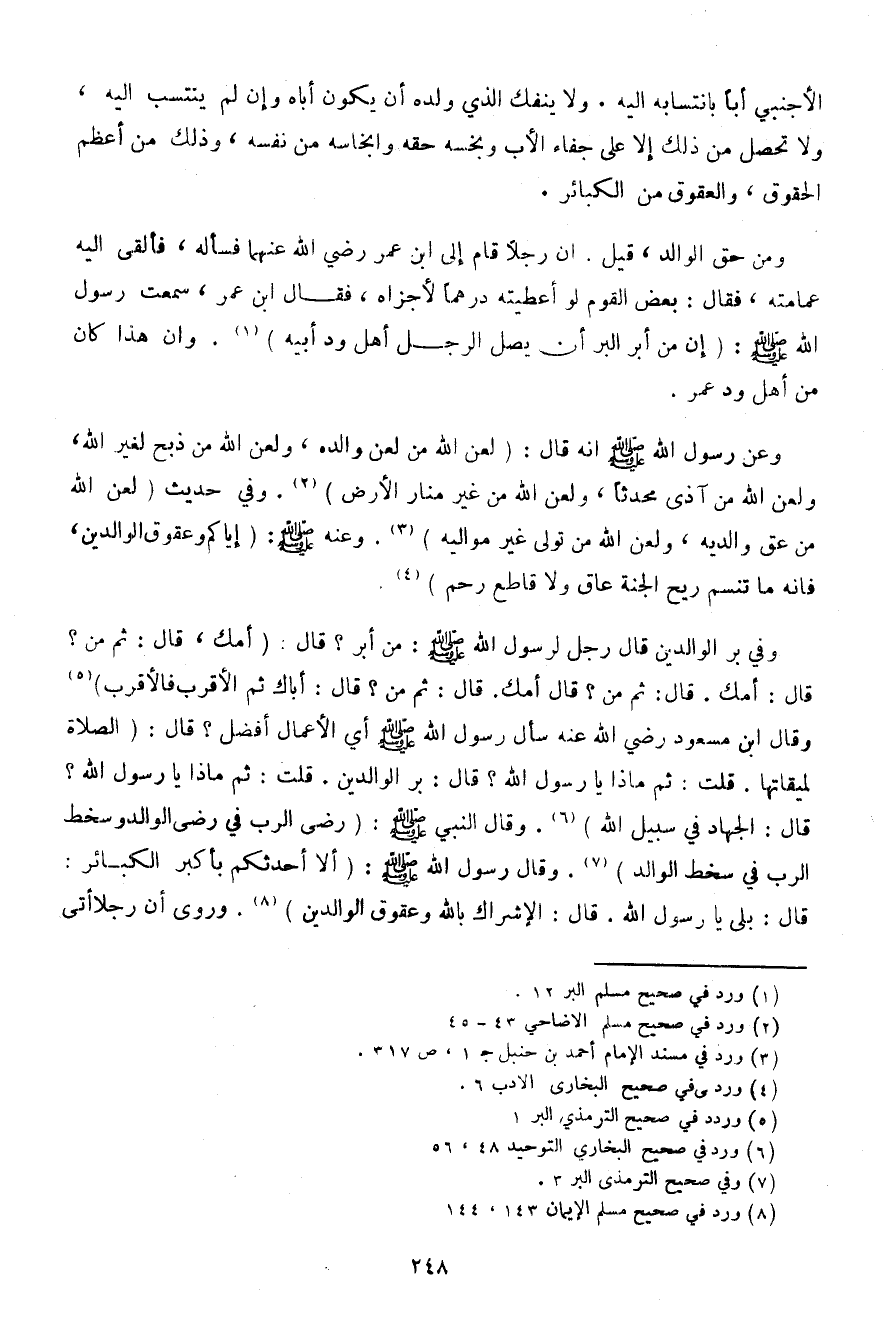 الأجنبي أباً بانتسابه اليه . ولا ينفك الذي ولده أن يكون أباه وإن لم ينتسب اليه ،
ولا تحصل من ذلك إلا على جفاء الأب وبخسه حقه وابخاسه من نفسه ، وذلك من أعظم
الحقوق ، والعقوق من الكبائر .
ومن حق الوالد ، قيل . ان رجلاً قام إلى ابن عمر رضي الله عنهما فسأله ، فألقى اليه
عمامته ، فقال : بعض القوم لو أعطيته درهماً لأجزاه ، فقال ابن عمر ، سمعت رسول
الله ﷺ : ( إن من أبر البر أن يصل الرجل أهل ود أبيه ) (١) . وان هذا كان
من أهل ود عمر .
وعن رسول الله ﷺ انه قال : ( لعن الله من لعن والده ، ولعن الله من ذبح لغير الله،
ولعن الله من آذى محدثاً ، ولعن الله من غير منار الأرض ) (٢) . وفي حديث ( لعن الله
من عق والديه ، ولعن الله من تولى غير مواليه ) (٣) . وعنه ﷺ: ( إياكم وعقوق الوالدين،
فانه ما تنسم ريح الجنة عاق ولا قاطع رحم ) (٤) .
وفي بر الوالدين قال رجل لرسول الله ﷺ : من أبر ؟ قال : ( أمك ، قال : ثم من ؟
قال : أمك . قال: ثم من ؟ قال أمك. قال : ثم من ؟ قال : أباك ثم الأقرب فالأقرب)(٥)
وقال ابن مسعود رضي الله عنه سأل رسول الله ﷺ أي الأعمال أفضل ؟ قال : ( الصلاة
لميقاتها . قلت : ثم ماذا يا رسول الله ؟ قال : بر الوالدين . قلت : ثم ماذا يا رسول الله ؟
قال : الجهاد في سبيل الله ) (٦) . وقال النبي ﷺ : ( رضى الرب في رضى الوالد وسخط
الرب في سخط الوالد ) (٧) . وقال رسول الله ﷺ : ( ألا أحدثكم بأكبر الكبائر :
قال : بلى يا رسول الله . قال : الإشراك بالله وعقوق الوالدين ) (٨) . وروى أن رجلا أتى
(١) ورد في صحيح مسلم البر ١٢ .
(٢) ورد في صحيح مسلم الاضاحي ٤٣ - ٤٥
(٣) ورد في مسند الإمام أحمد بن حنبل جـ ١ ، ص ٣١٧ .
(٤) ورد ى في صحيح البخارى الادب ٦ .
(٥) وردد في صحيح الترمذي البر ١
(٦) ورد في صحيح البخاري التوحيد ٤٨ ، ٥٦
(٧) وفي صحيح الترمذى البر ٣ .
(٨) ورد في صحيح مسلم الإيمان ١٤٣ ، ١٤٤
٢٤٨